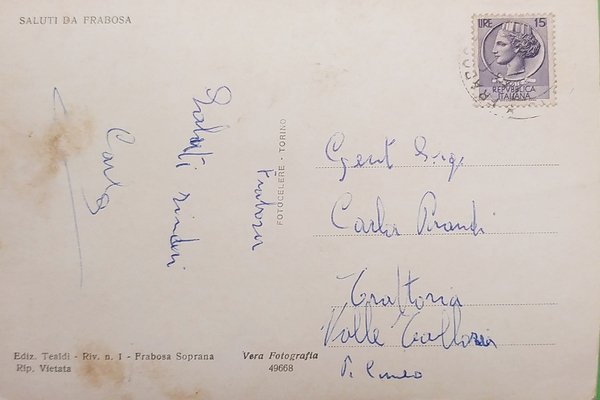 SALUTI DA FRABOSA
LIRE 15
REPVBBLICA
ITALIANA
Frabosa
Saluti sinceri
Carlo
FOTOCELERE - TORINO
Gent Sig.
Carlo
Trattoria
Valle
P. Cuneo
Ediz. Tealdi - Riv. n. 1 - Frabosa Soprana
Rip. Vietata
Vera Fotografia
49668